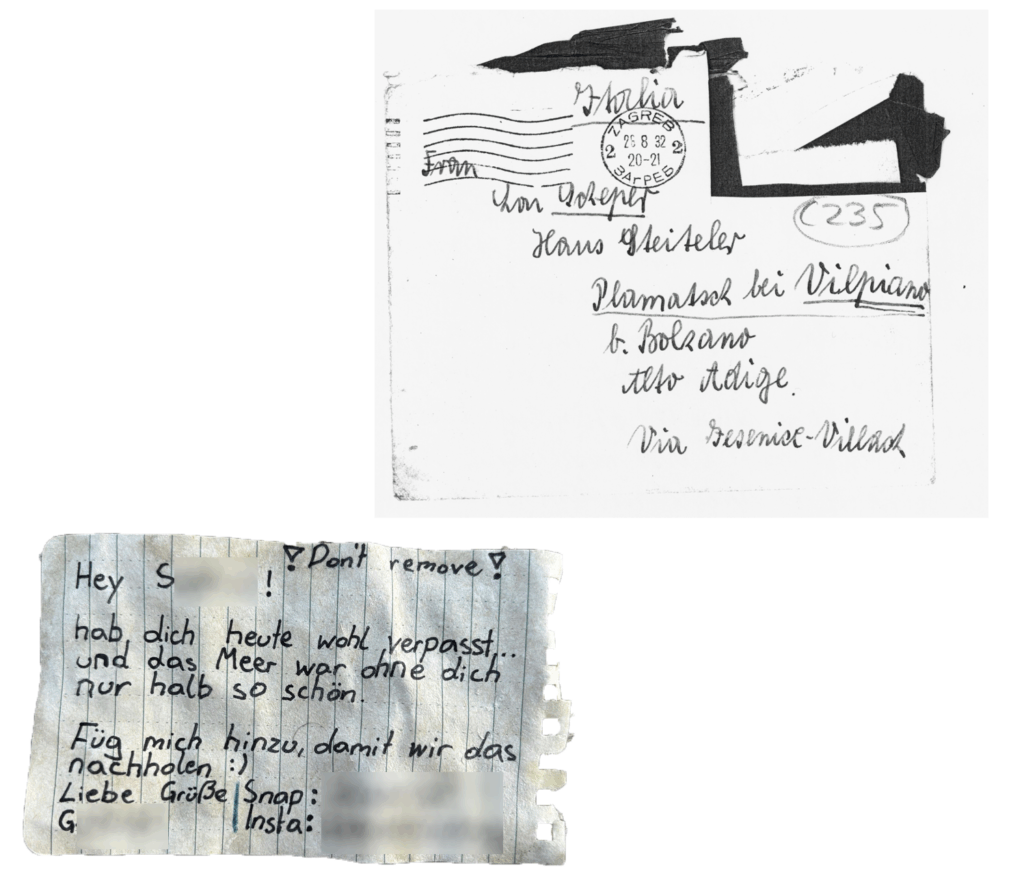 Italia
ZAGREB
2 26 8 32 2
20-21
ЗАГРЕБ
Frau
von
(235)
Hans Steiteler
Plamatsch bei Vilpiano
b. Bolzano
Alto Adige.
Via Jesenice-Villach
! Don't remove !
Hey S !
hab dich heute wohl verpasst...
und das Meer war ohne dich
nur halb so schön.
Füg mich hinzu, damit wir das
nachholen :)
Liebe Grüße | Snap:
G Insta: